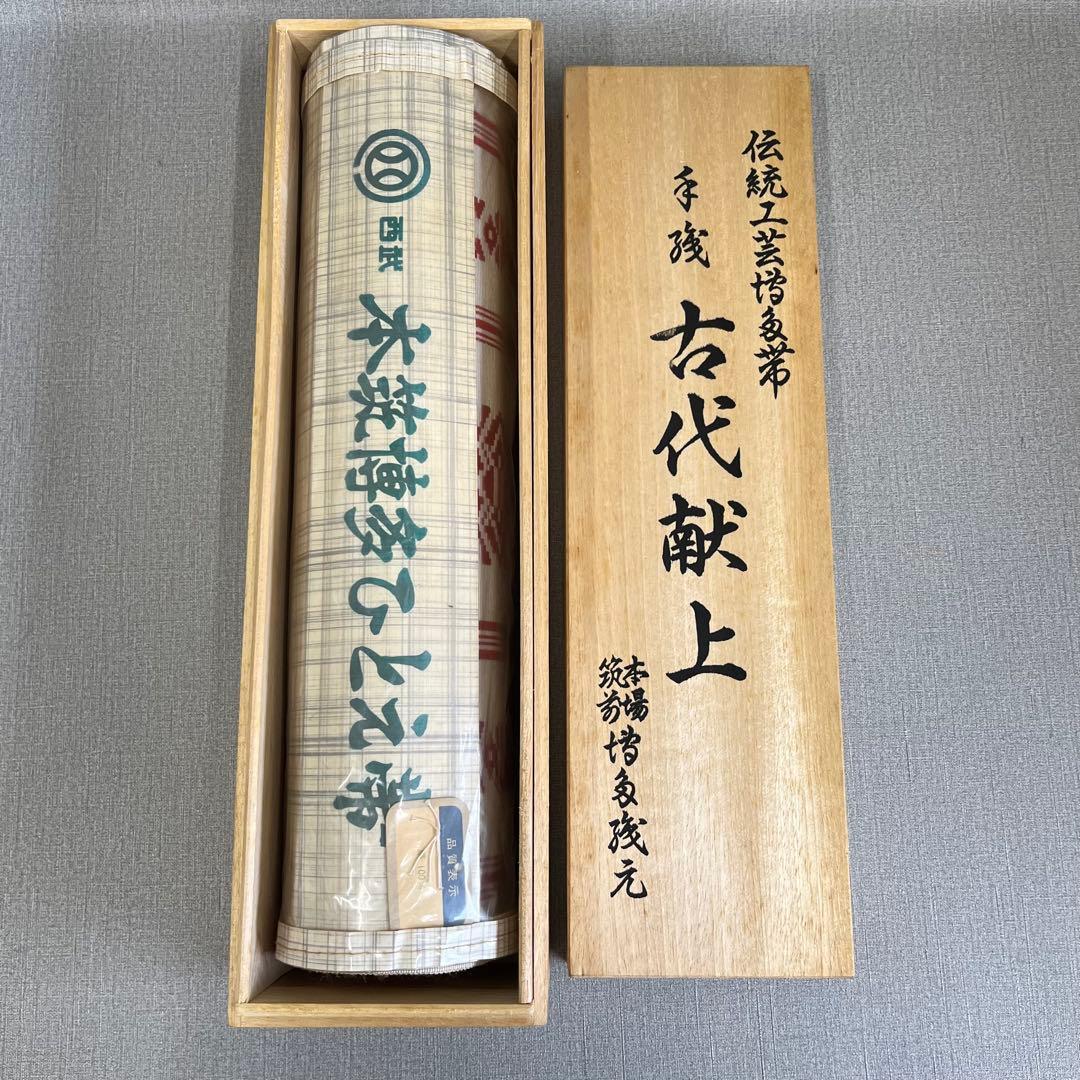 西武
本筑博多ひとえ帯
品質表示
伝統工芸博多帯
手織
古代献上
本場
筑前
博多織元